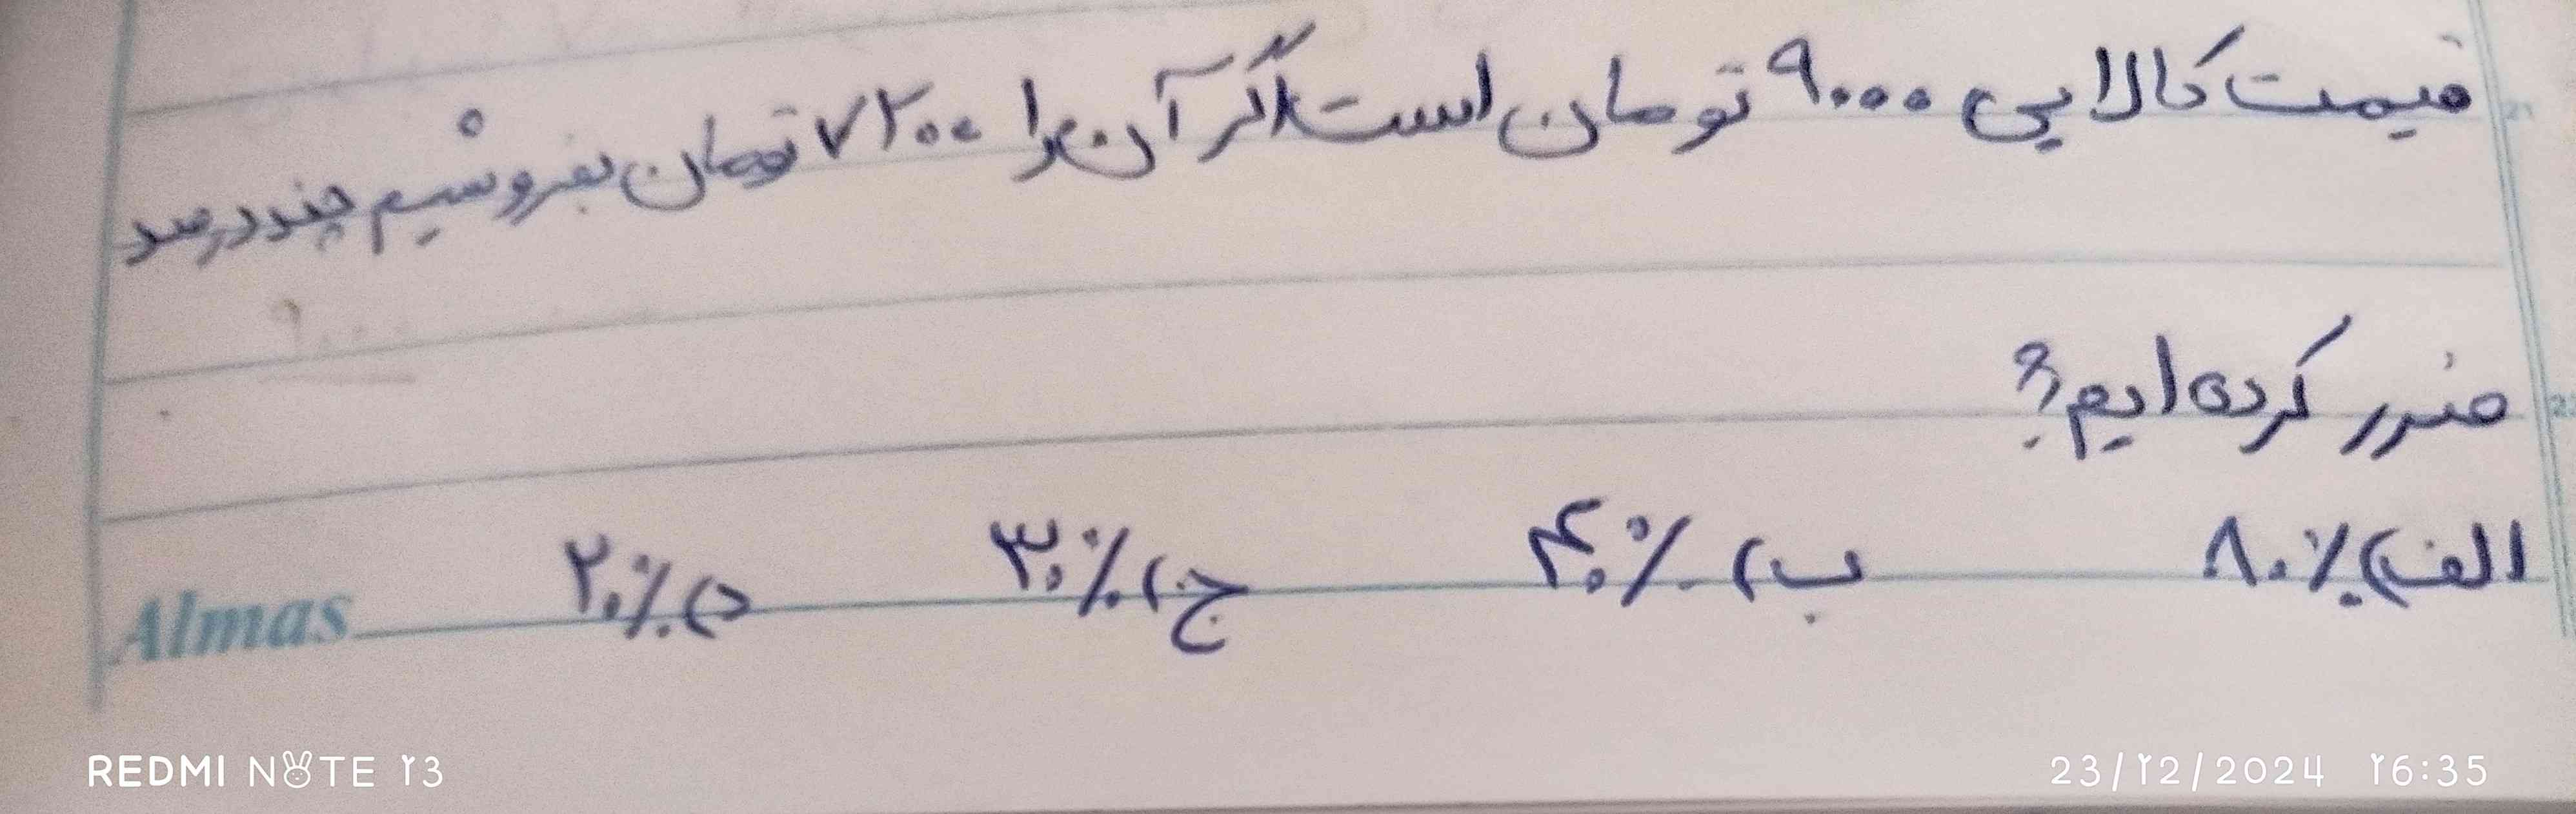 قیمت کالایی ۹۰۰۰ تومان است اگر آن را ۷۲۰۰ تومان بفروشیم چند درصد
ضرر کرده ایم؟
الف) ٪۸۰ ب) ٪۴۰ ج) ٪۳۰ د) ٪۲۰
Almas
REDMI NOTE 13
23/12/2024 16:35